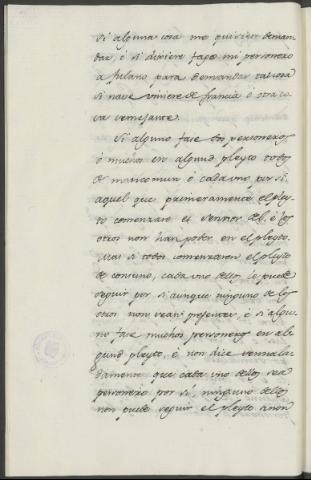 si alguna cosa me quisier deman
dar, è si dixiere fago mi personero
à fulano para demandar tal cosa
si nave viniere de francia ò otra co
sa semejante.
Si alguno face dos personeros
ò muchos en algund pleyto todos
de mancomun ò cada uno por si,
aquel que primeramente el pley
to comenzare es sennor del, è los
otros non han poder en el pleyto.
Mas si todos comenzaron el pleyto
de consuno, cada uno dellos lo puede
seguir por si aunque ninguno de los
otros non sean presentes, è si algu
no face muchos personeros en al
gund pleyto, è non dice sennala
damente que cada uno dellos sea
personero por si, ninguno dellos
non puede seguir el pleyto à non